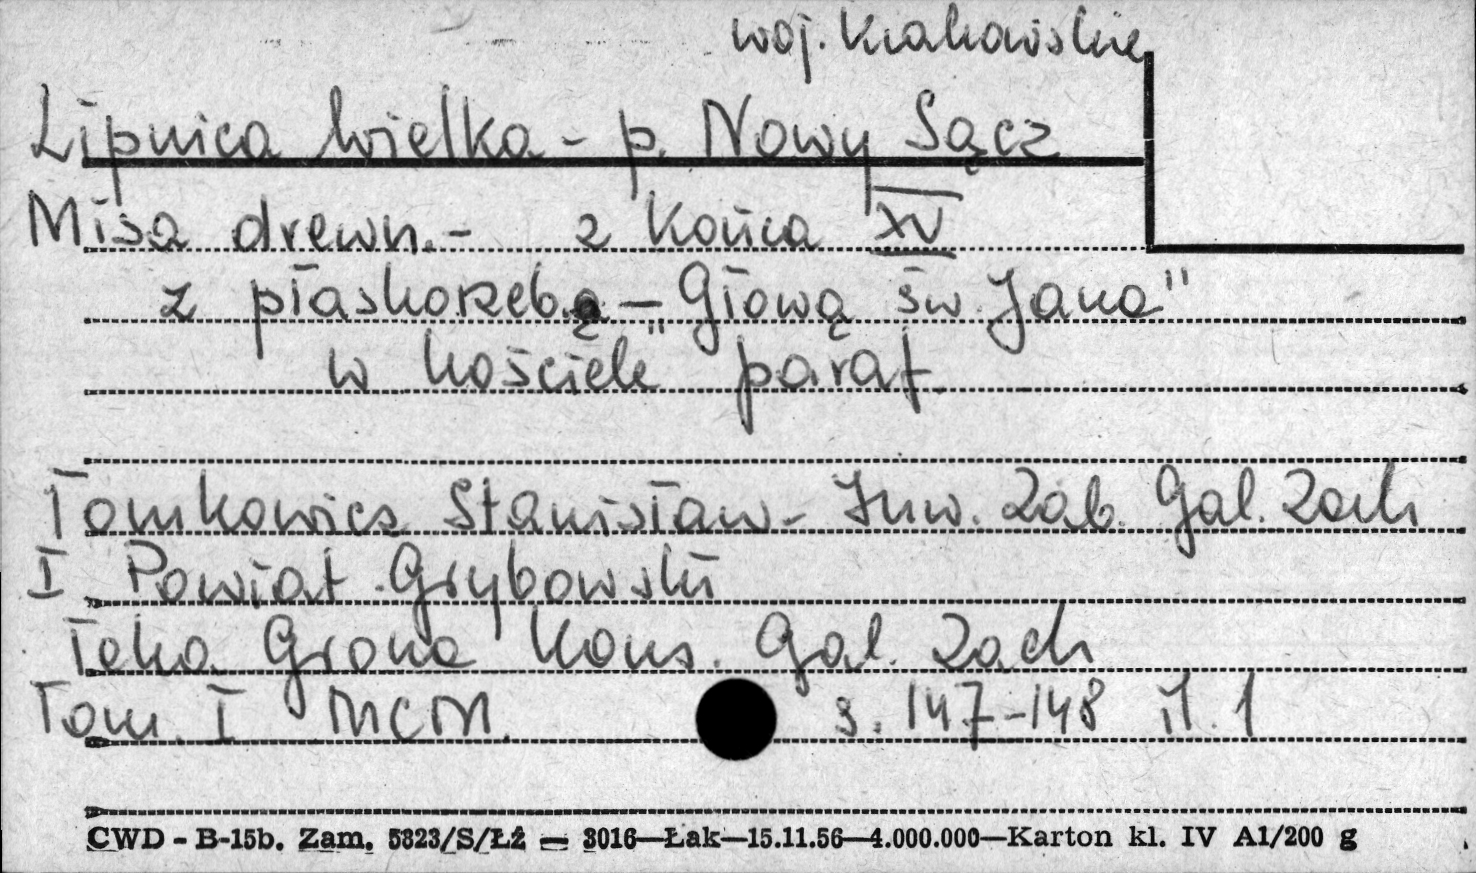 woj. Krakowskie
Lipnica Wielka - p. Nowy Sącz
Misa drewn. - z końca XV
z płaskorzeb.ą - „Głową św. Jana"
w kościele paraf.
Tomkowicz Stanisław - Inw. Zab. Gal. Zach
I Powiat Grybowski
Teka Grona Kons. Gal. Zach
Tom I MCM. s. 147-148 il. 1
CWD - B-15b. Zam. 5823/S/ŁŻ — 3016—Łak—15.11.56—4.000.000—Karton kl. IV A1/200 g